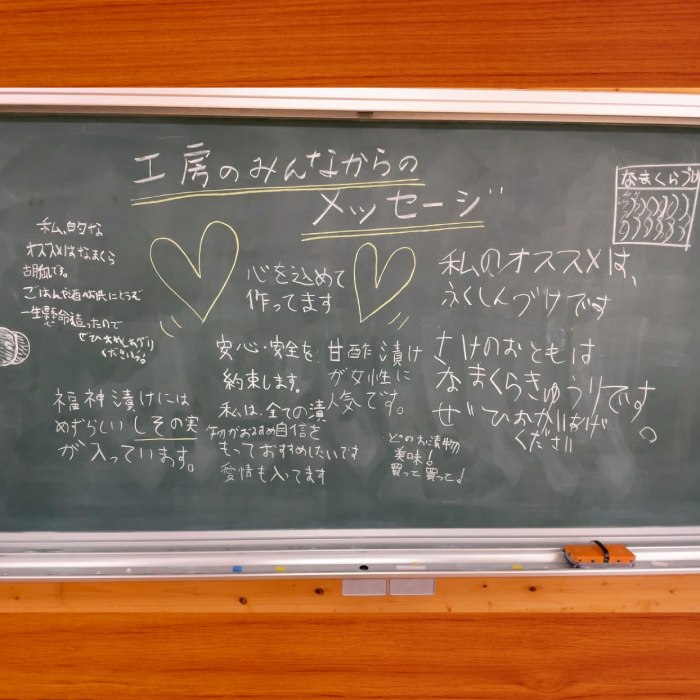 工房のみんなからの
メッセージ
なまくらづけ
私的な
オススメはなまくら
胡瓜です。
ごはんや酒のお供にどうぞ
一生懸命造ったので
ぜひおめしあがり
ください。
心を込めて
作ってます
私のオススメは、
ふくしんづけです
安心・安全を
約束します。
甘酢漬け
が女性に
人気です。
さけのおともは
なまくらきゅうりです。
ぜひおかいあげ
ください
福神漬けには
めずらしいしその実
が入っています。
私は、全ての漬
物がおすすめ自信を
もっておすすめしたいです
愛情も入ってます
どのお漬物
美味!
買って買っと!